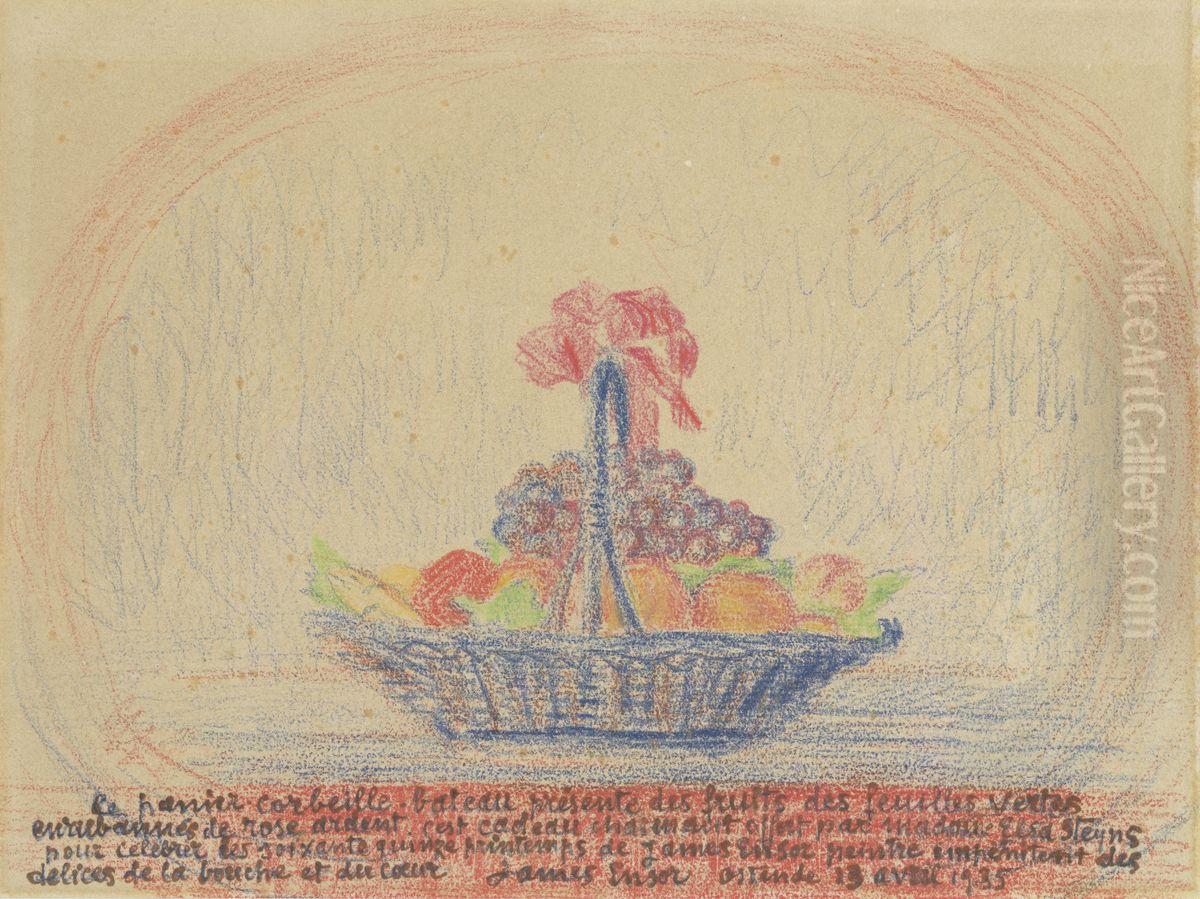 Ce panier corbeille-bateau présente des fruits des feuilles vertes
enrubannés de rose ardent. c'est cadeau charmant offert par madame Elsa Steyns
pour celebrer les soixante quinze printemps de James Ensor peintre impenitent des
délices de la bouche et du cœur James Ensor ostende 13 avril 1935
NiceArtGallery.com